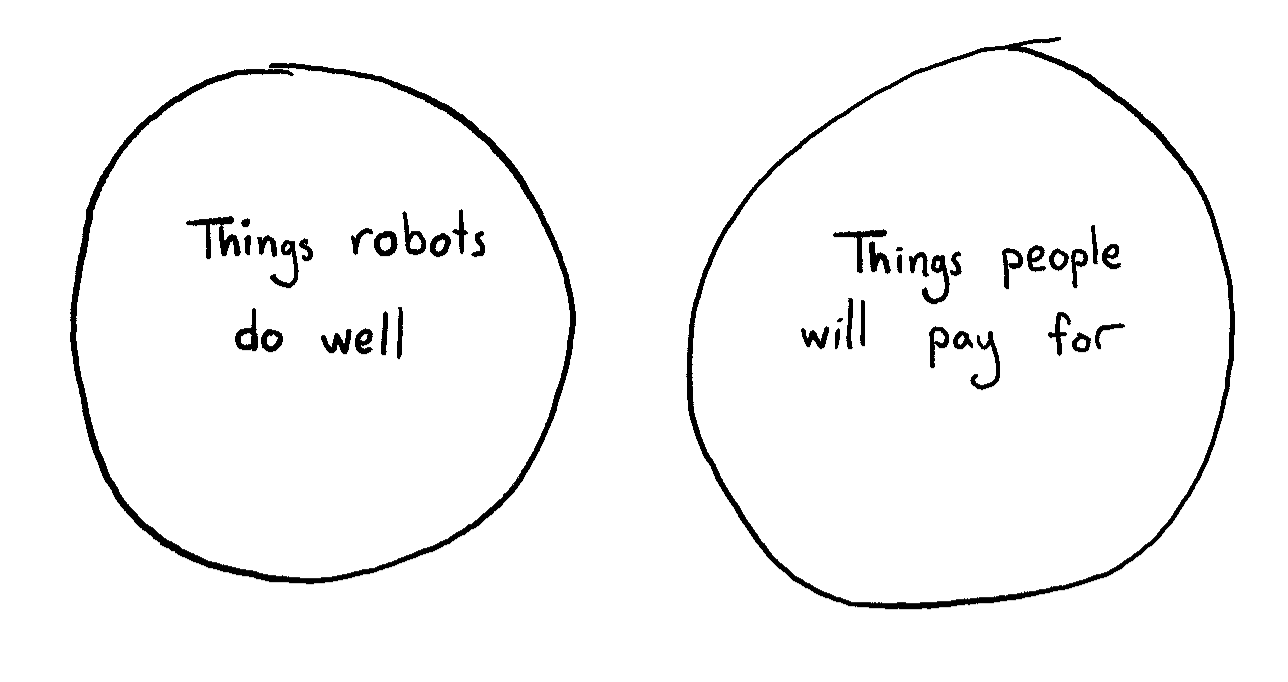 Things robots
do well
Things people
will pay for